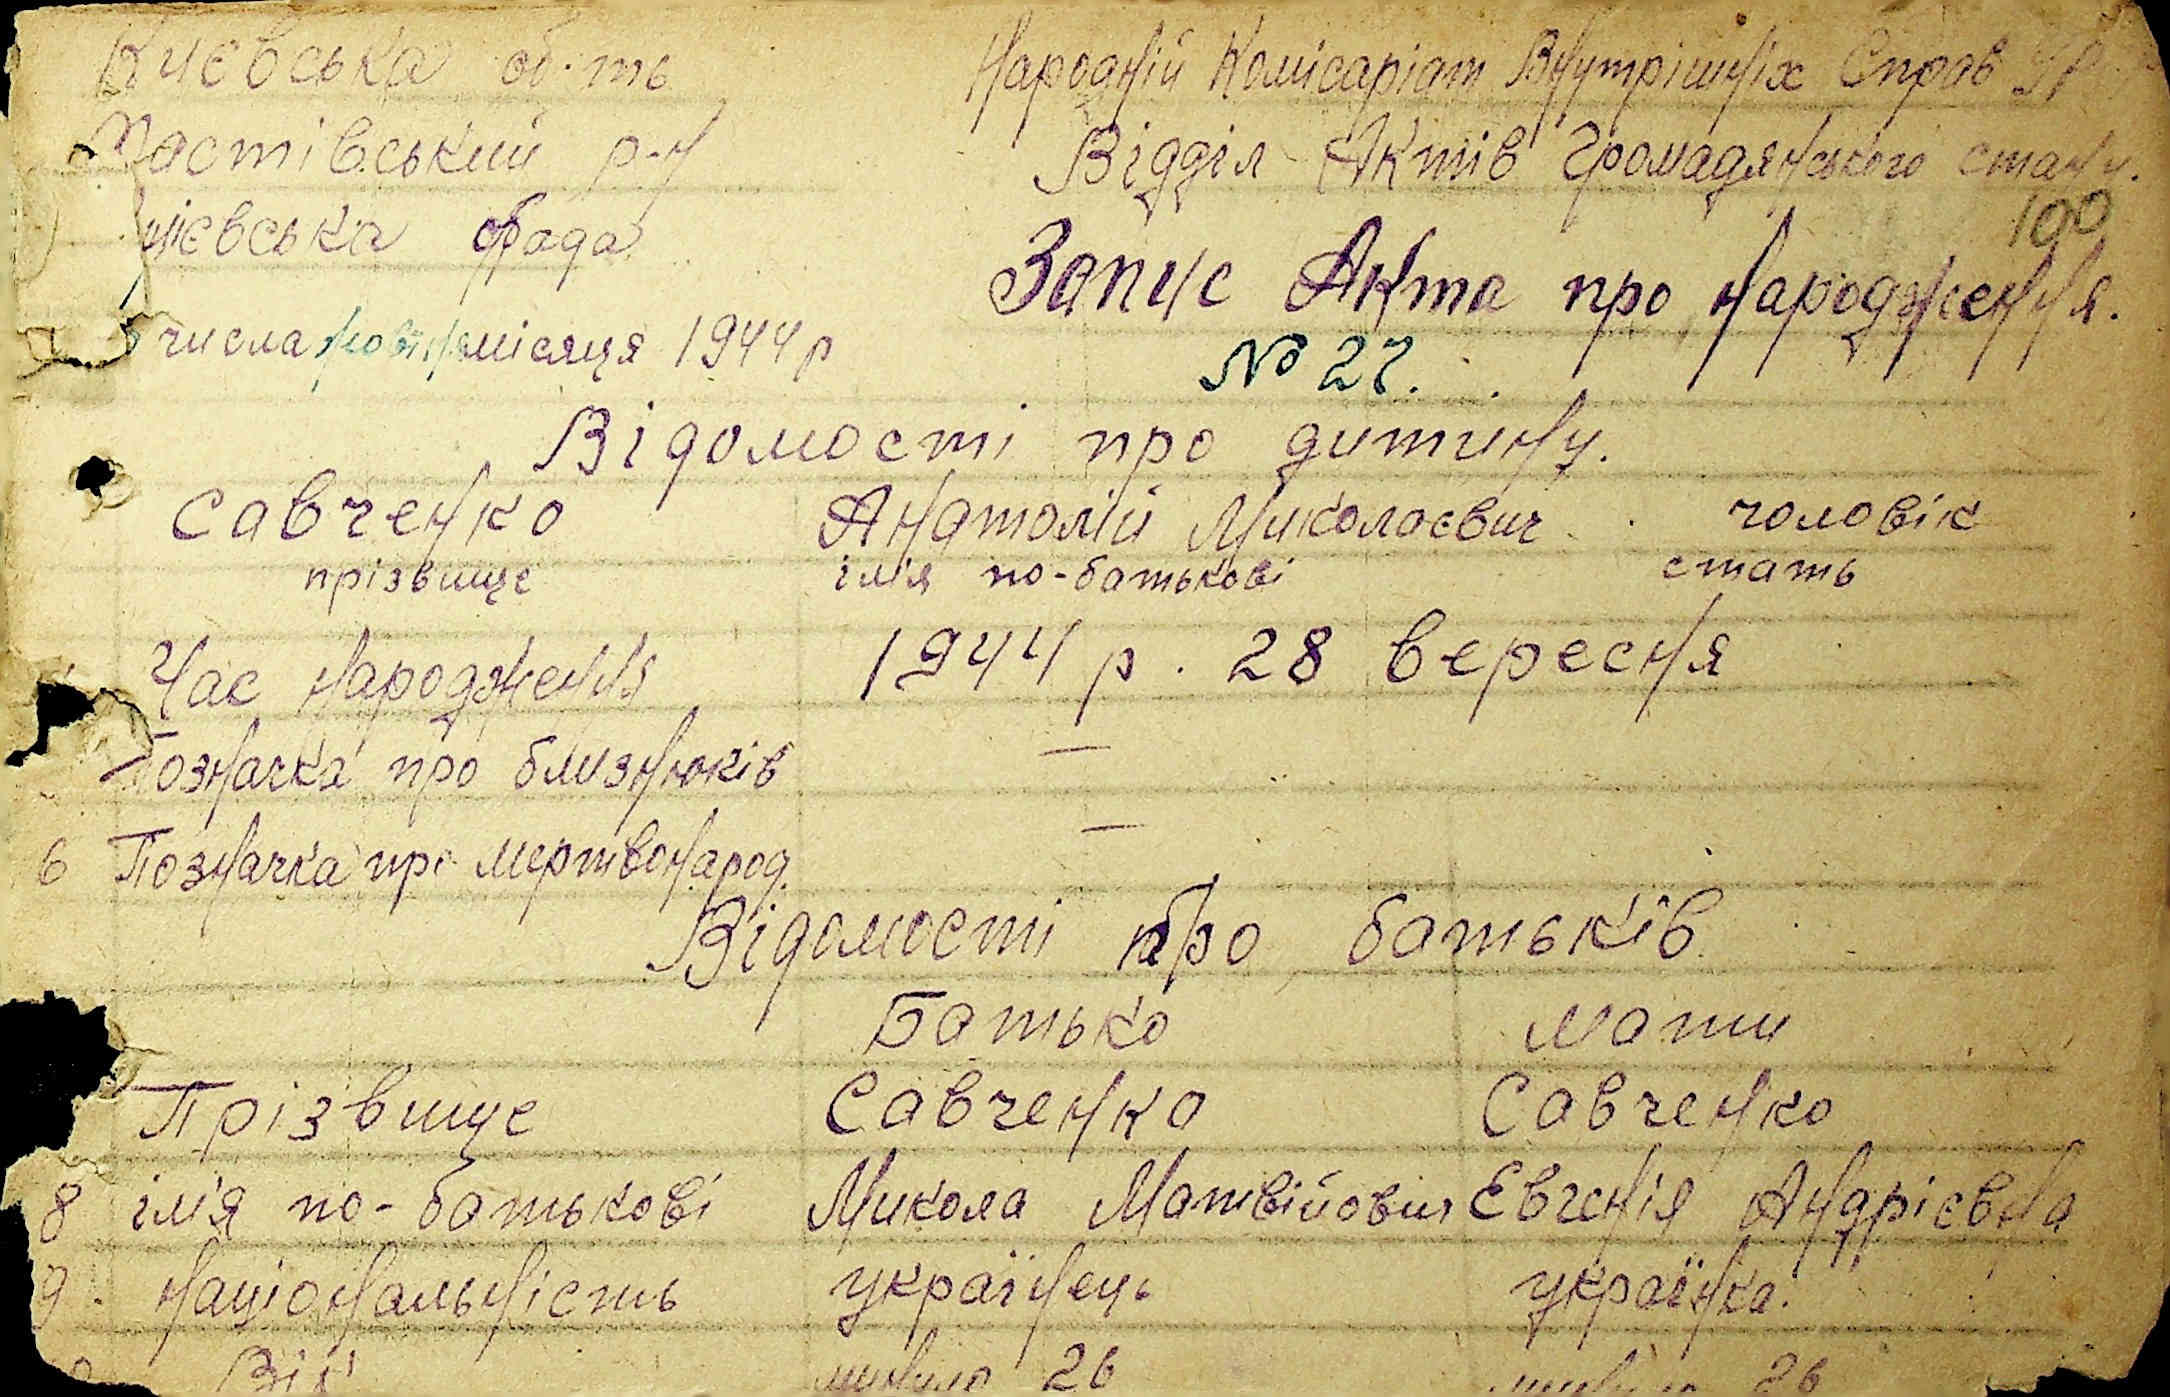 Києвська об-ть
Народній Комісаріат Внутрішніх Справ
стівський р-н
Відділ Актів Громадянського стану.
цієвська с/рада
100
Запис Акта про народження.
числа жовтня місяця 1944 р
№ 27.
Відомості про дитину.
Савченко Анатолій Миколаєвич чоловік
прізвище ім'я по-батькові стать
Час народження 1944 р. 28 вересня
Позначка про близнюків —
6 Позначка про мертвонарод. —
Відомості про батьків
Батько мати
Прізвище Савченко Савченко
8 ім'я по-батькові Микола Матвійович Євгенія Андрієвна
9. національність українець українка.
Вік минуло 26 минуло 26